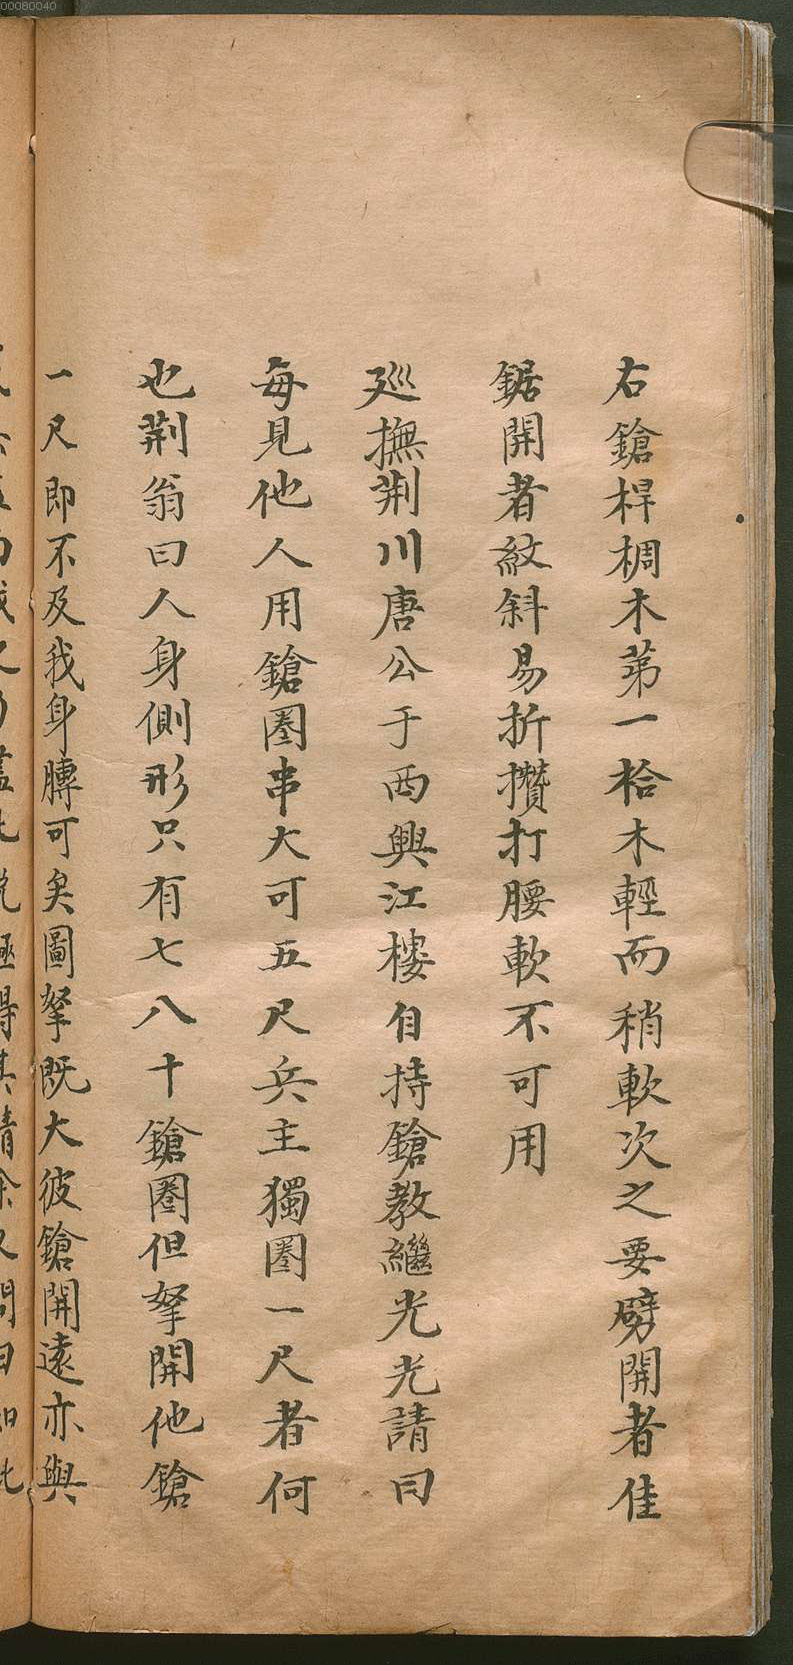 00080040
右鎗桿椆木苐一枱木輕而稍軟次之要劈開者佳
鋸開者紋斜易折攢打腰軟不可用
廵撫荆川唐公于西興江樓自持鎗教繼光光請曰
每見他人用鎗圏串大可五尺兵主獨圏一尺者何
也荆翁曰人身側形只有七八寸鎗圏但拏開他鎗
一尺即不及我身膊可矣圖拏既大彼鎗開遠亦與